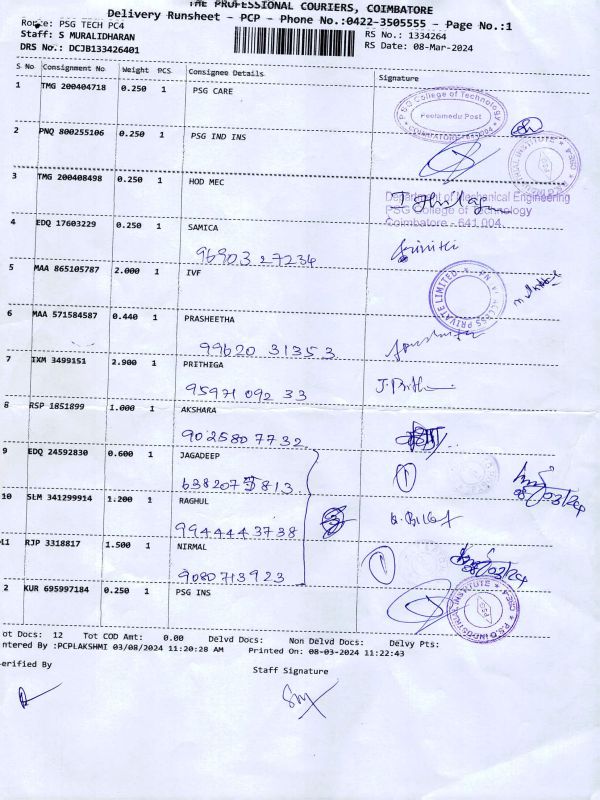 THE PROFESSIONAL COURIERS, COIMBATORE
Delivery Runsheet - PCP - Phone No.:0422-3505555 - Page No.:1
Route: PSG TECH PC4
RS No.: 1334264
Staff: S MURALIDHARAN
RS Date: 08-Mar-2024
DRS No.: DCJB133426401
S No Consignment No Weight PCS Consignee Details Signature
1 TMG 200404718 0.250 1 PSG CARE
P.S.G College of Technology
Peelamedu Post
COIMBATORE 641 004
2 PNQ 800255106 0.250 1 PSG IND INS
3 TMG 200408498 0.250 1 HOD MEC
Department of Mechanical Engineering
PSG College of Technology
Coimbatore - 641 004
4 EDQ 17603229 0.250 1 SAMICA
96903 27234
5 MAA 865105787 2.000 1 IVF
PRIVATE LIMITED
6 MAA 571584587 0.440 1 PRASHEETHA
99620 31353
7 IXM 3499151 2.900 1 PRITHIGA
95971 092 33
8 RSP 1851899 1.000 1 AKSHARA
902580 7732
9 EDQ 24592830 0.600 1 JAGADEEP
638207 5813
08/03/24
10 SLM 341299914 1.200 1 RAGHUL
9944443738
11 RJP 3318817 1.500 1 NIRMAL
9080713923
08/03/24
2 KUR 695997184 0.250 1 PSG INS
P.S.G INDUSTRIAL INSTITUTE
ot Docs: 12 Tot COD Amt: 0.00 Delvd Docs: Non Delvd Docs: Delvy Pts:
ntered By :PCPLAKSHMI 03/08/2024 11:20:28 AM Printed On: 08-03-2024 11:22:43
erified By
Staff Signature